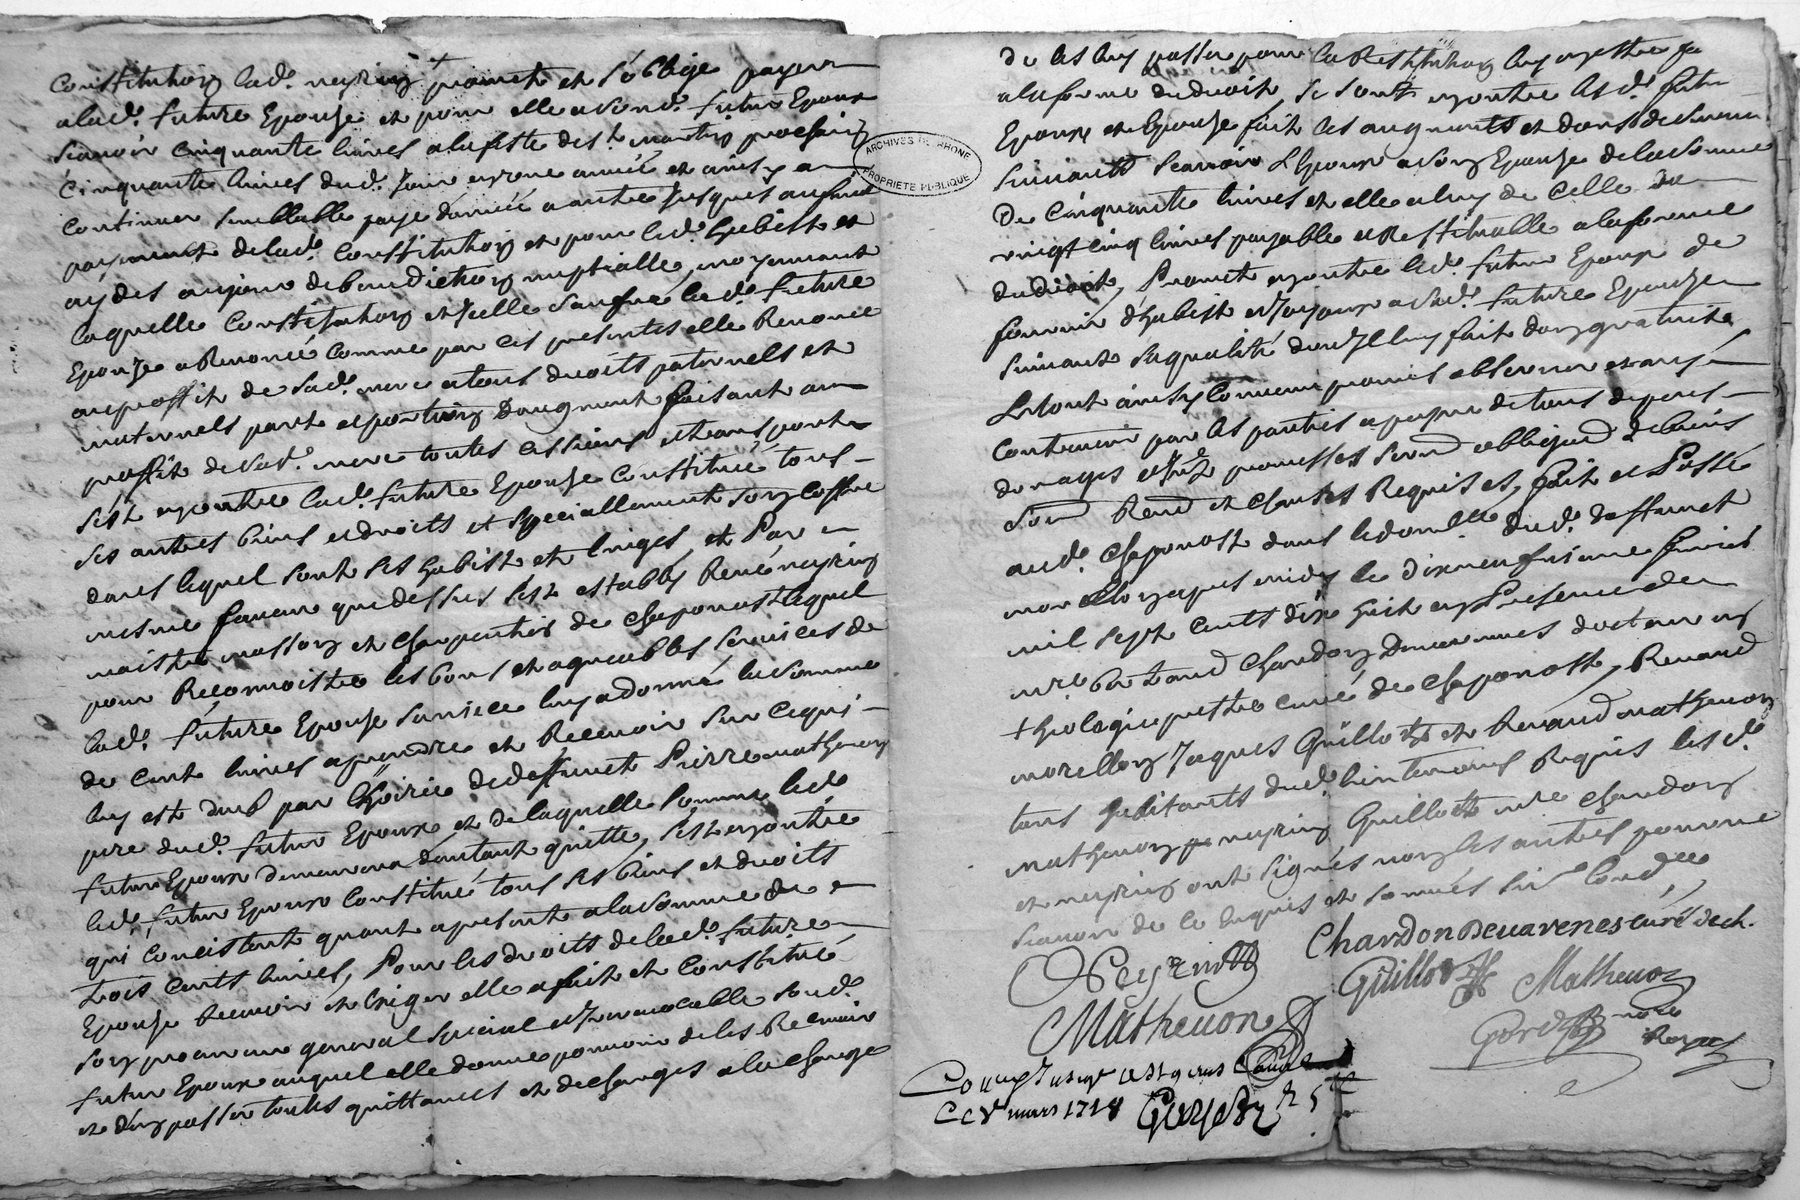 Constitution lad. neyrin promet et s'oblige payer
alad. future Epouse et pour elle a sond. futur Epoux
scavoir cinquante livres alafeste de st. martin prochain
cinquante livres dud. jour en une année et ainsy a
continuer semblable paye dannée a autre jusques au final
payement delad. Constitution et pour led. habist et
aydes au jour de benediction nuptialle, moyennant
laquelle Constitution et jcelle sauf lad. future
Epouse a Renoncé comme par ces presentes elle Renonce
au proffit de sad. mere a tous droits paternels et
maternels part et portion daugment faisant au
proffit de sad. mere toutes cessions et transports
sest en outre lad. future Epouse Constitué tous
ses autres biens et droits et speciallement son coffre
dans lequel sont ses habist et linges, et Par
mesme faveur que dessus sest estably René neyrin
maistre masson et charpentier de chaponost lequel
pour Reconnoistre les bons et agreables services de
lad. future Epouse sa niece luy a donné la somme
de cent livres a prendre et Recevoir sur ce qui
luy est deub par lhoirie de deffunct Pierre mathevon
pere dud. futur Epoux et de laquelle somme led.
futur Epoux demeurera dautant quitte, sest en outre
led. futur Epoux Constitué tous ses biens et droits
qui Concistent quant a present a la somme de
trois cents livres, Pour les droits delad. future
Epouse Recevoir et Exiger elle a fait et Constitué
son procureur general special et jrrevocable sond.
futur Epoux auquel elle donne pouvoir de les Recevoir
et den passer toutes quittances et decharges a la charge
de les luy passer pour la Restitution luy en estre fa
a la forme du droit, se sont en outre lesd. futur
Epoux et Epouse fait les augments et dons de survie
suivants scavoir LEpoux a son Epouse de la somme
De cinquante livres et elle a luy de celle de
vingt cinq livres payable et Restituable a la forme
du droit, Promet en outre led. futur Epoux de
fournir dhabist et joyaux a sad. future Epouse
suivant sa qualité dont jl luy fait don gratuit
Le tout ainsy Convenu promis observer et non
contrevenir par les parties a peyne de tous depens
domages et jnt. promesses serm. obligaon de biens
Soum. Renon. et clauses Requises, fait et Passé
aud. chaponost dans le domille. dud. deffunct
morellon apres midy le dixneufvieme fevrier
mil sept cents dix huit en Presence de
mre. Chardon Devavennes docteur en
theologie prestre curé de chaponost, Renaud
morellon Jaques Guillot et Renaud mathevon
tous habitants dud. lieu temoins Requis lesd.
mathevon neyrin Guillot mre chardon
et neyrin ont signés non les autres pour ne
scavoir de ce enquis et sommés
Neyrin
Chardon Devavenes curé de ch.
Guillot
Mathevon
Mathevon
nore
Royal
Ce V mars 1718
ARCHIVES DE RHONE
PROPRIETE PUBLIQUE